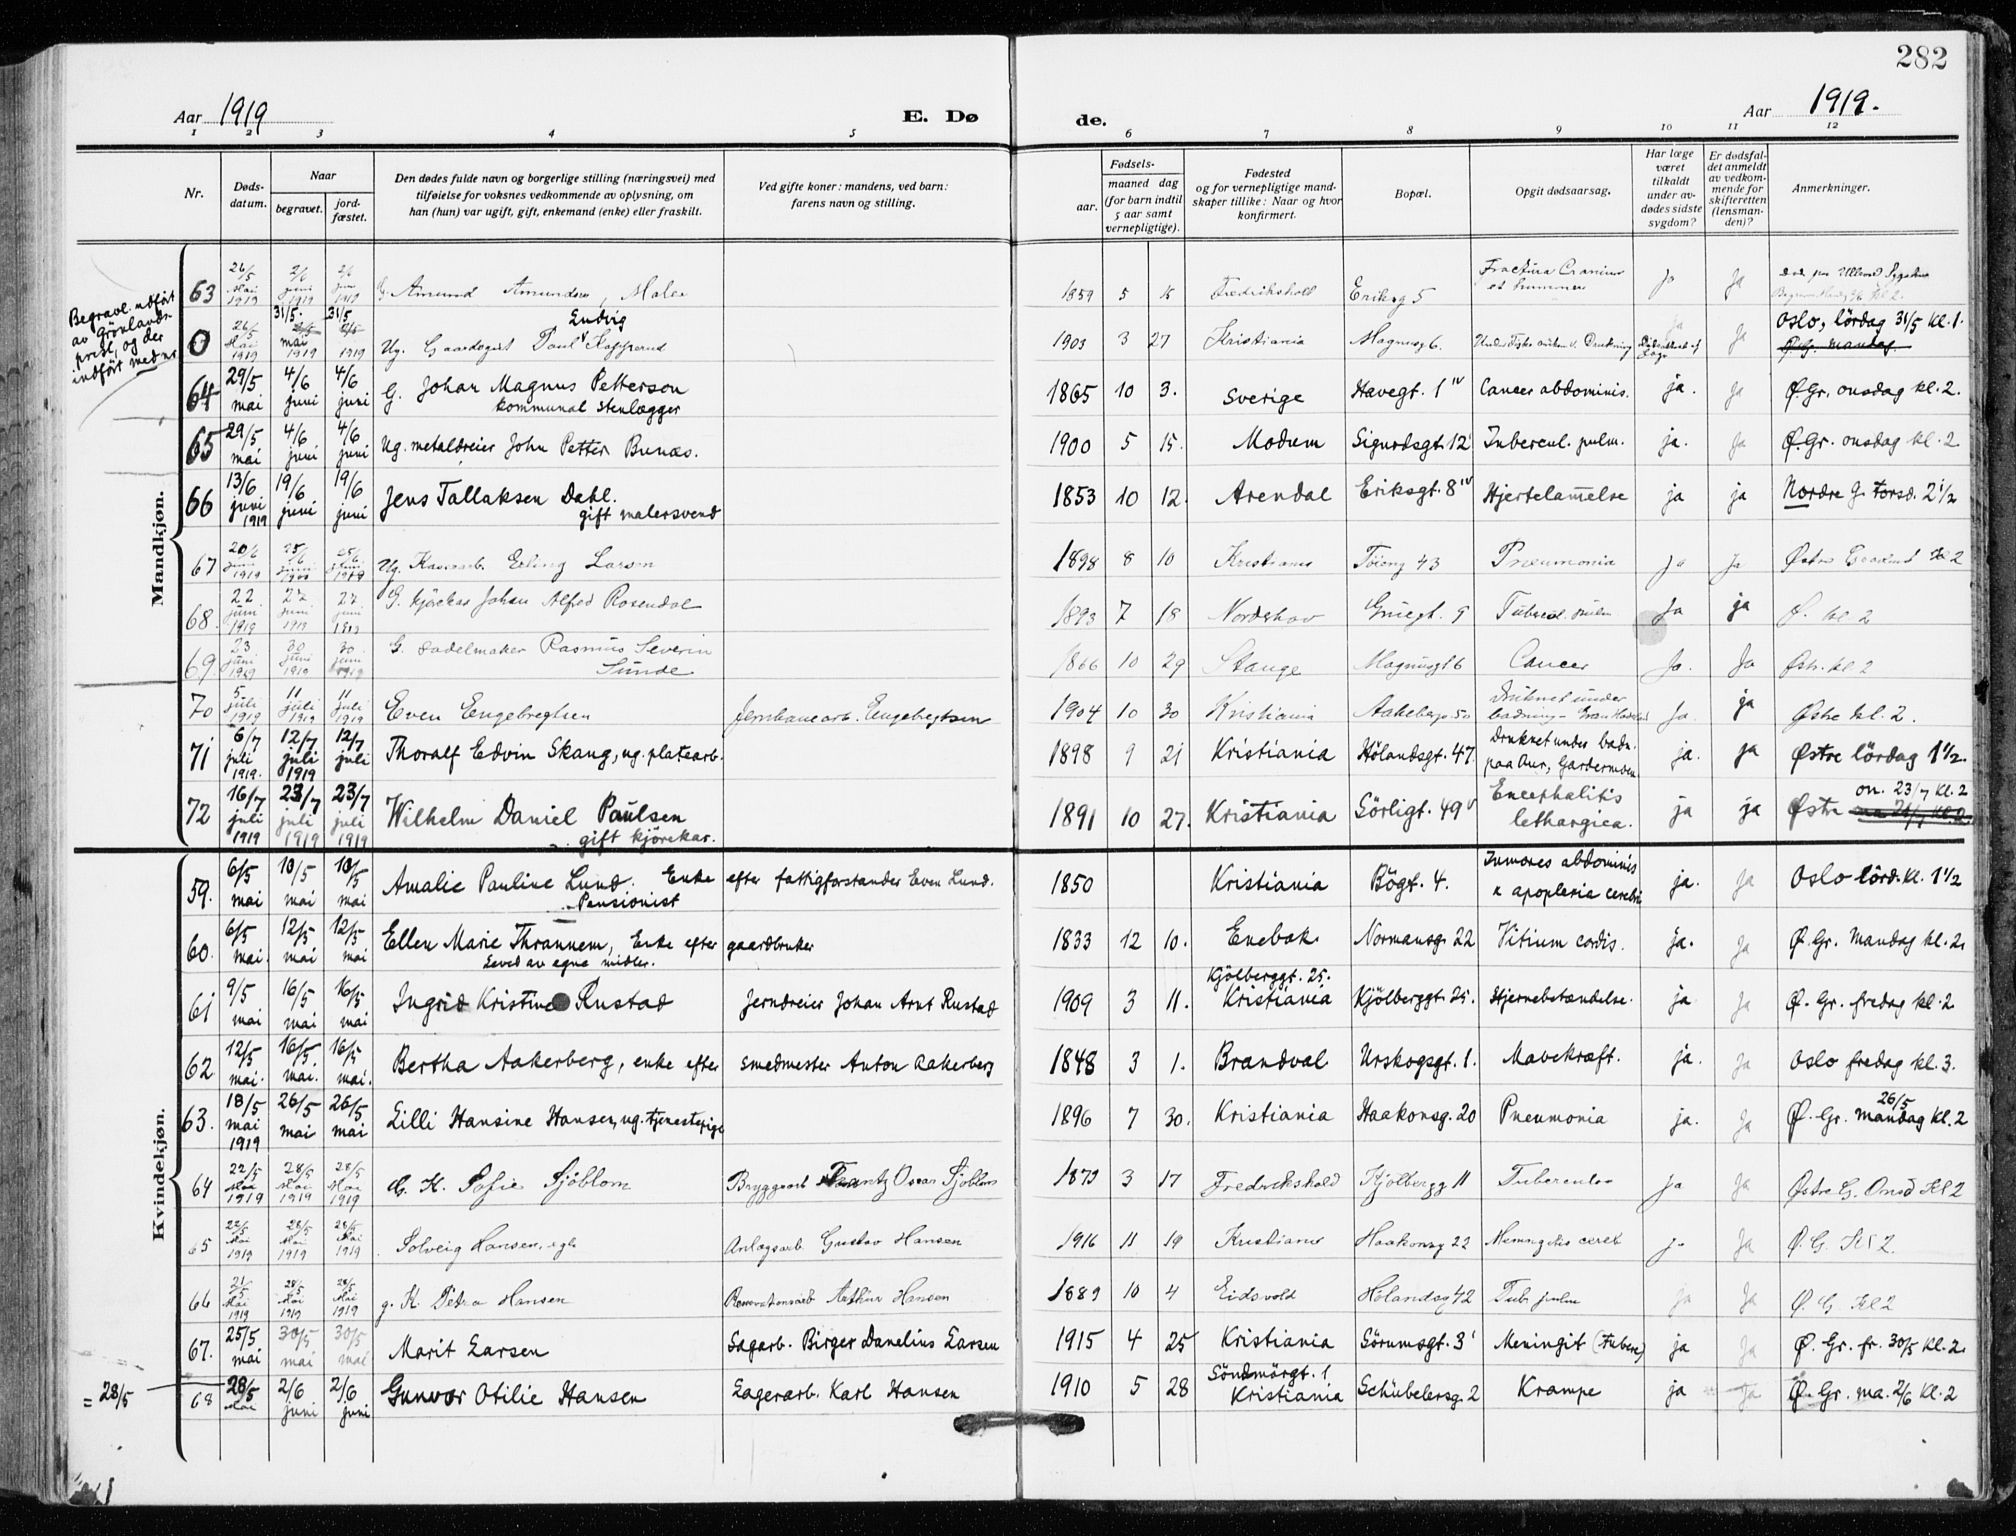 282
Aar 1919 E. Dø de. Aar 1919.
1 2 3 4 5 6 7 8 9 10 11 12
Nr. Døds-datum. Naar begravet. jord-fæstet. Den dødes fulde navn og borgerlige stilling (næringsvei) med tilføielse for voksnes vedkommende av oplysning, om han (hun) var ugift, gift, enkemand (enke) eller fraskilt. Ved gifte koner: mandens, ved barn: farens navn og stilling. Fødsels- aar. maaned dag (for barn indtil 5 aar samt vernepligtige). Fødested og for vernepligtige mandskaper tillike: Naar og hvor konfirmert. Bopæl. Opgit dødsaarsag. Har læge været tilkaldt under avdødes sidste sygdom? Er dødsfaldet anmeldt av vedkommende for skifteretten (lensmanden)? Anmerkninger.
Begravl. utført av Grönlands prest, og der indført med nr.
Mandkjøn.
63 26/5 Mai 1919 2/6 juni 1919 2/6 jun 1919 G. Amund Amundsen, Maler 1859 5 15 Fredrikshald Eriksg 5 Fractura Cranium et humeri Ja Ja
0 26/5 Mai 1919 31/5. mai 1919 31/5 1919 Ug. Gaardsgut Paul Endvig Kopperud 1903 3 27 Kristiania Magnusg 6. Ja Oslo, lördag 31/5 kl. 1. Ø. G. mandag.
64 29/5 mai 4/6 juni 4/6 juni G. Johan Magnus Petterson kommunal stenlægger 1865 10 3. Sverige Havegt. 1 IV Cancer abdominis. ja. ja Ø. Gr. onsdag kl. 2.
65 29/5 mai 4/6 juni 4/6 juni Ug. metaldreier John Petter Bunæs. 1900 5 15. Modum Sigurdsgt. 12 Tubercul. pulm. ja. ja Ø. Gr. onsdag kl. 2
66 13/6 juni 1919 19/6 juni 19/6 juni Jens Tallaksen Dahl. gift malersvend 1853 10 12. Arendal Eriksgt. 8 IV Hjertelam̅else ja ja Nordre G. torsd. 2 1/2
67 20/6 juni 1919 25/6 juni 1919 25/6 juni 1919 Ug. Erling Larsen 1898 8 10 Kristiania Töieng 43 Pneumonia ja Ja Østre Gravlund Kl 2
68. 22 juni 1919 27 juni 1919 27 juni 1919 G. kjörekar Johan Alfred Rosendal 1893 7 18 Nordskov Griegt. 9 Tubercul. pulm Ja ja Ø. kl 2
69. 23 juni 1919 30 juni 1919 30. juni 1919 G. sadelmaker Rasmus Severin Sunde 1866 10 29 Stange Magnusgt 6 Cancer Ja. Ja Østr. kl 2
70 5 juli 1919 11 juli 1919 11 juli 1919 Even Engebregtsen Jernbanearb. Engebregtsen 1904 10 30 Kristiania Aakebergv 50 Druknet under badning Ja. ja Østre kl. 2.
71 6/7 juli 1919. 12/7 juli 1919 12/7 juli Thoralf Edvin Skaug, ug. platearb. 1898 9 21 Kristiania Hölandsgt. 47. Druknet under badn. paa Aur, Gardermoen ja. ja Østre lördag 1 1/2.
72 16/7 juli 1919 23/7 juli 1919 23/7 juli 1919 Wilhelm Daniel Paulsen gift kjörekar. 1891 10 27. Kristiania Sörligt. 49 V Encephalitis lethargica. ja ja Østre on. 23/7 kl. 2 ma 21/7 kl. 2
Kvindekjøn.
59. 6/5 mai 10/5 mai 10/5 mai Amalie Pauline Lund. Enke efter fattigforstander Even Lund. Pensionist 1850 Kristiania Bögt. 4. Tumores abdominis & apoplexia cerebri ja. ja Oslo lörd. kl. 1 1/2
60. 6/5 mai. 12/5 mai 12/5 mai Ellen Marie Thrannem, Enke efter gaardbruker Leved av egne midler. 1833 12 10. Enebak Normansg. 22 Vitium cordis. ja. ja Ø. Gr. Mandag kl. 2.
61 9/5 mai 16/5 mai 16/5 mai Ingrid Kristine Rustad Jerndreier Johan Arnt Rustad 1909 3 11. Kjölberggt. 25. Kristiania Kjölberggt. 25. Hjernebetændelse. ja ja Ø. Gr. fredag kl. 2
62 12/5 mai. 16/5 mai. 16/5 mai. Bertha Aakerberg, enke efter smedmester Anton Aakerberg 1848 3 1. Brandval Urskogsgt. 1. Mavekræft. ja. ja Oslo fredag kl. 3.
63. 18/5 mai 1919 26/5 mai 26/5 mai Lilli Hansine Hansen, ug. tjenestepige 1896 7 30. Kristiania Haakonsg. 20 Pneumonia ja. ja Ø. Gr. Mandag 26/5 kl. 2
64 22/5 Mai 1919 28/5 Mai 1919 28/5 Mai 1919 G. K. Sofie Sjöblom Bryggearb Frantz Oscar Sjöblom 1873 3 17 Fredrikshald Kjölbergg 11 Tuberculos ja Ja Østre G. Onsd Kl 2
65 22/5 Mai 1919 28/5 Mai 1919 28/5 Mai 1919 Solveig Hansen, egte Anlægsarb Gustav Hansen 1916 11 19 Kristiania Haakonsg 22 Meningitis cereb ja Ja Ø. G. Kl 2.
66 21/5 Mai 1919 28/5 Mai 1919 28/5 Mai 1919 g. K. Petra Hansen Renovationsarb Arthur Hansen 1889 10 4 Eidsvold Hölandsg 42 Tub. pulm ja Ja Ø. G. Kl 2
67. 25/5 mai 30/5 mai 30/5 mai Marit Larsen Sagarb. Birger Danelius Larsen 1915 4 25 Kristiania Sörumsgt. 3 Meningit (Tuberc) ja Ja Ø. Gr. fr. 30/5 kl. 2.
= 28/5 68 28/5 Mai 2/6 juni 2/6 juni Gunvor Otilie Hansen Lagerarb. Karl Hansen 1910 5 28 Söndmörgt. 1 Kristiania Schübelersg. 2 Krampe ja Ja Ø. Gr. ma. 2/6 kl. 2